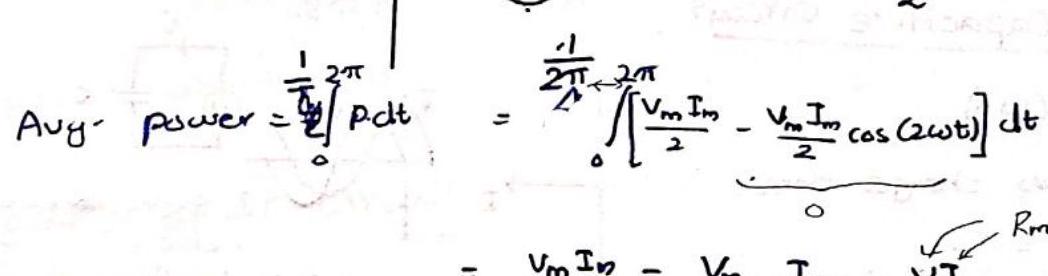 2
Avg. power = 1/T ∫₀^2π p.dt = 1/2π ∫₀^2π [VmIm/2 - VmIm/2 cos(2ωt)] dt
0
Rm
= VmIm - Vm Im VI